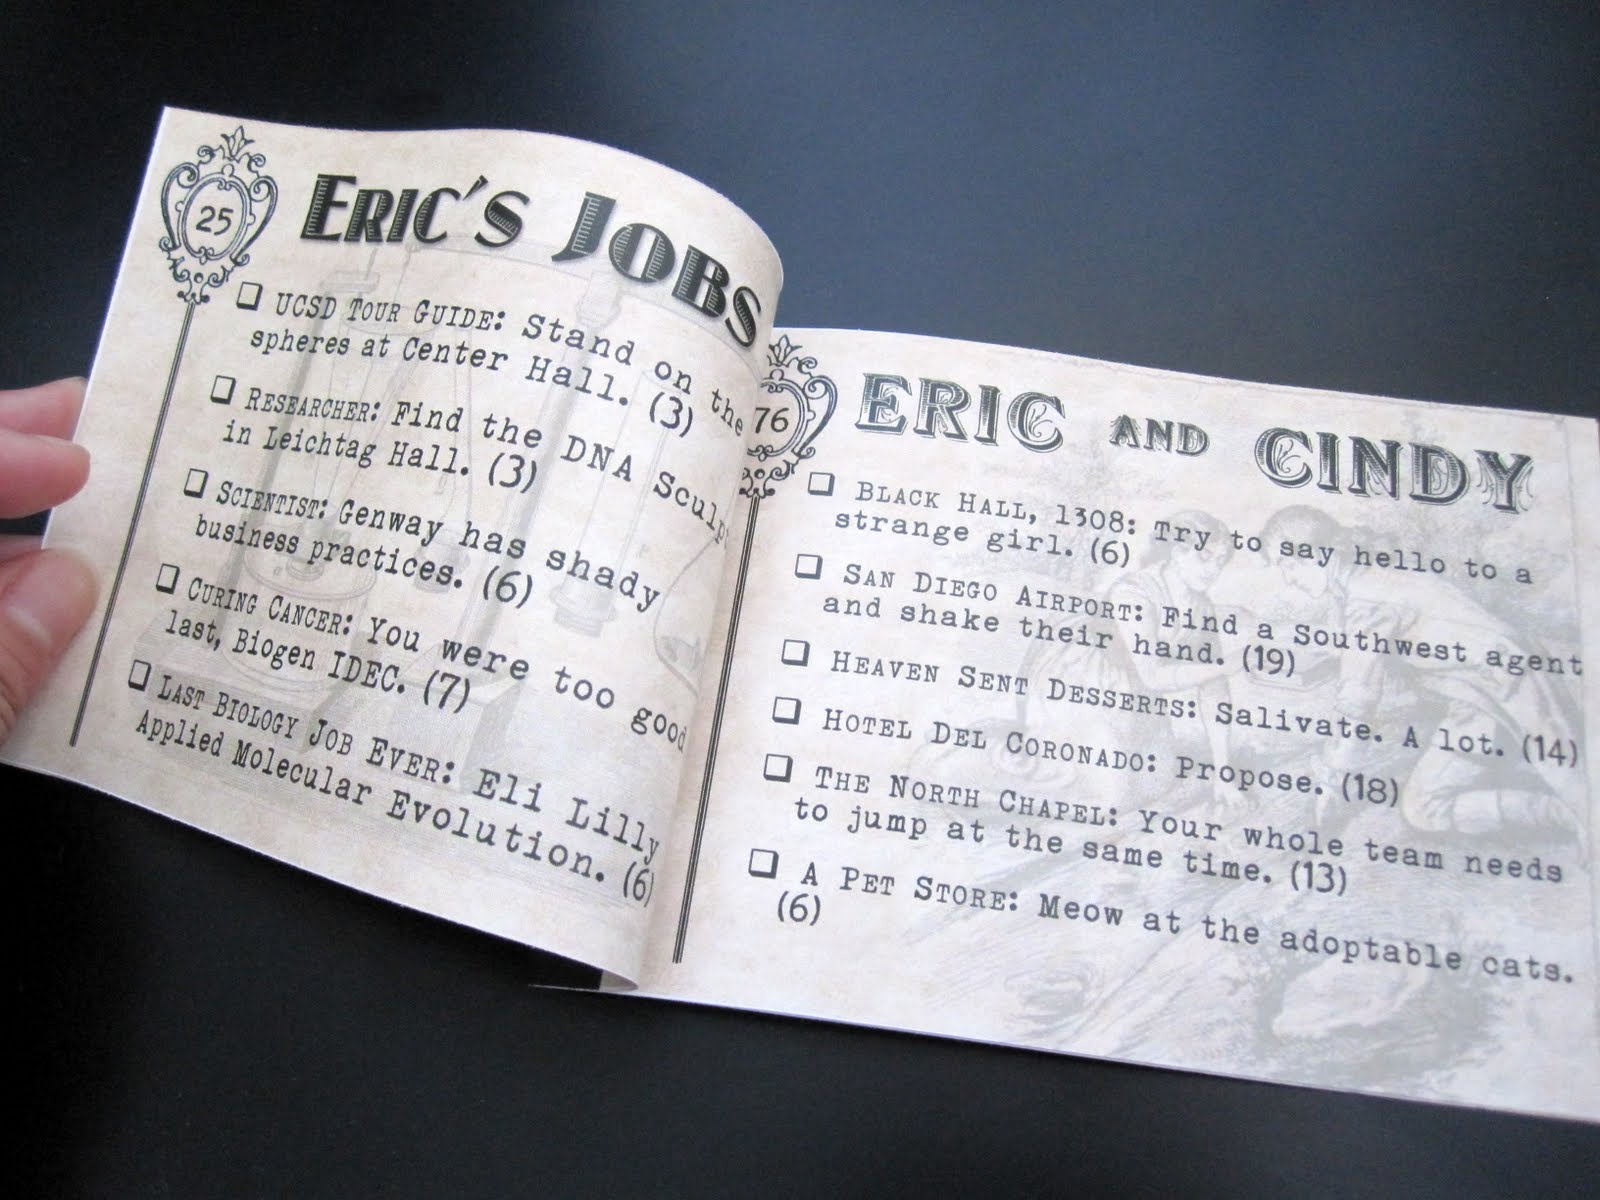 25
ERIC'S JOBS
❑ UCSD TOUR GUIDE: Stand on the
spheres at Center Hall. (3)
❑ RESEARCHER: Find the DNA Sculpt
in Leichtag Hall. (3)
❑ SCIENTIST: Genway has shady
business practices. (6)
❑ CURING CANCER: You were too good
last, Biogen IDEC. (7)
❑ LAST BIOLOGY JOB EVER: Eli Lilly
Applied Molecular Evolution. (6)
76
ERIC AND CINDY
❑ BLACK HALL, 1308: Try to say hello to a
strange girl. (6)
❑ SAN DIEGO AIRPORT: Find a Southwest agent
and shake their hand. (19)
❑ HEAVEN SENT DESSERTS: Salivate. A lot. (14)
❑ HOTEL DEL CORONADO: Propose. (18)
❑ THE NORTH CHAPEL: Your whole team needs
to jump at the same time. (13)
❑ A PET STORE: Meow at the adoptable cats.
(6)